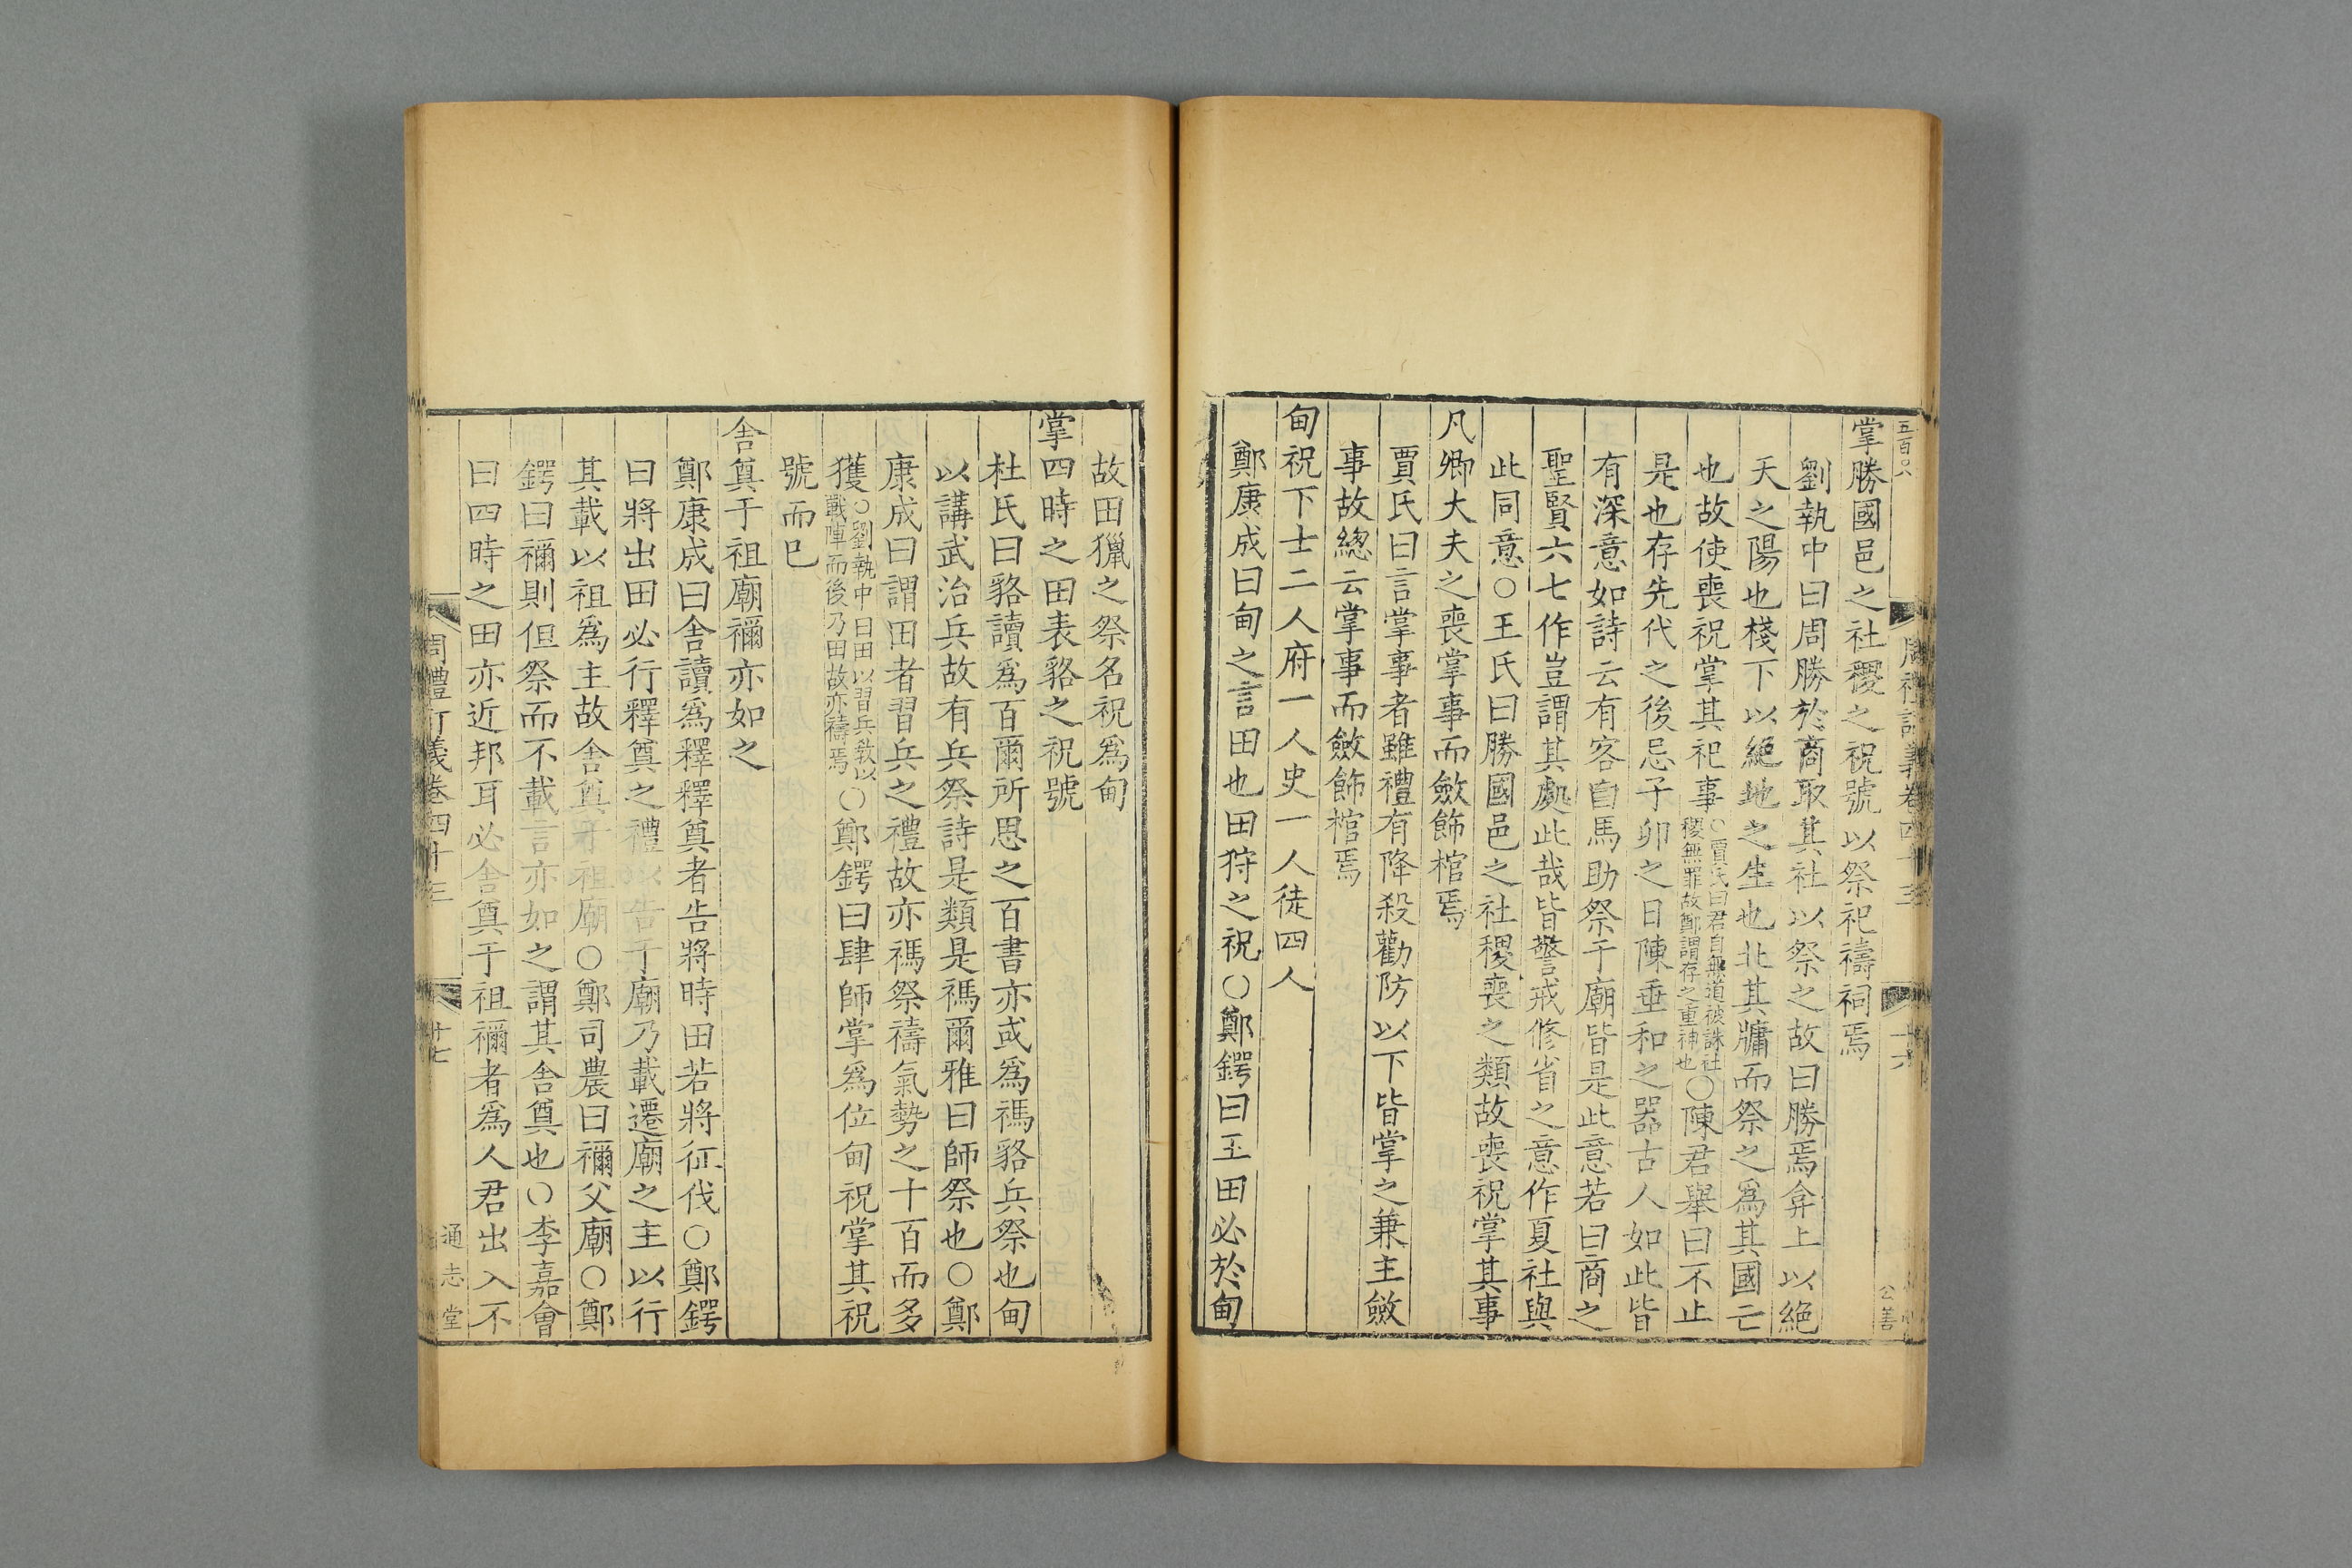 掌勝國邑之社稷之祝號以祭祀禱祠焉
劉執中曰周勝於商取其社以祭之故曰勝焉弇上以絶
天之陽也棧下以絕地之生也北其牖而祭之爲其國亡
也故使喪祝掌其祀事○賈氏曰君自無道被誅社稷無罪故鄭謂存之重神也○陳君舉曰不止
是也存先代之後忌子卯之日陳垂和之器古人如此皆
有深意如詩云有客白馬助祭于廟皆是此意若曰商之
聖賢六七作豈謂其處此哉皆警戒修省之意作夏社與
此同意○王氏曰勝國邑之社稷喪之類故喪祝掌其事
凡卿大夫之喪掌事而斂飾棺焉
賈氏曰言掌事者雖禮有降殺勸防以下皆掌之兼主斂
事故總云掌事而斂飾棺焉
甸祝下士二人府一人史一人徒四人
鄭康成曰甸之言田也田狩之祝○鄭鍔曰王田必於甸
故田獵之祭名祝爲甸
掌四時之田表貉之祝號
杜氏曰貉讀爲百爾所思之百書亦或爲禡貉兵祭也甸
以講武治兵故有兵祭詩是類是禡爾雅曰師祭也○鄭
康成曰謂田者習兵之禮故亦禡祭禱氣勢之十百而多
獲○劉執中曰田以習兵敎以戰陣而後乃田故亦禱焉○鄭鍔曰肆師掌爲位甸祝掌其祝
號而已
舍奠于祖廟禰亦如之
鄭康成曰舍讀爲釋釋奠者告將時田若將征伐○鄭鍔
曰將出田必行釋奠之禮以告于廟乃載遷廟之主以行
其載以祖爲主故舍奠于祖廟○鄭司農曰禰父廟○鄭
鍔曰禰則但祭而不載言亦如之謂其舍奠也○李嘉會
曰四時之田亦近邦耳必舍奠于祖禰者爲人君出入不
周禮訂義卷四十三
廿七
通志堂